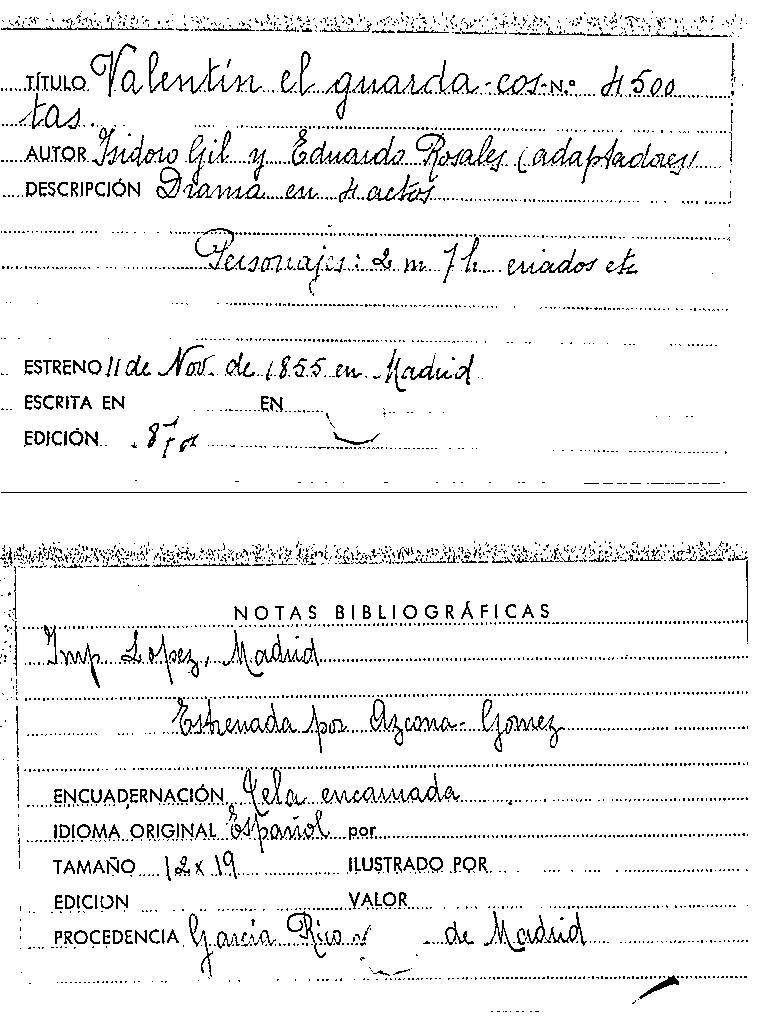 TÍTULO Valentín el guarda-cos- N.º 4500
tas.
AUTOR Isidoro Gil y Eduardo Rosales (adaptadores)
DESCRIPCIÓN Drama en 4 actos
Personajes: 2 m 7 h criados etc
ESTRENO 11 de Nov. de 1855 en Madrid
ESCRITA EN EN
EDICIÓN
NOTAS BIBLIOGRÁFICAS
Imp. Lopez, Madrid
Estrenada por Azcona-Gomez
ENCUADERNACIÓN Tela encarnada
IDIOMA ORIGINAL Español por
TAMAÑO 12 x 19 ILUSTRADO POR
EDICION VALOR
PROCEDENCIA García Rico y de Madrid